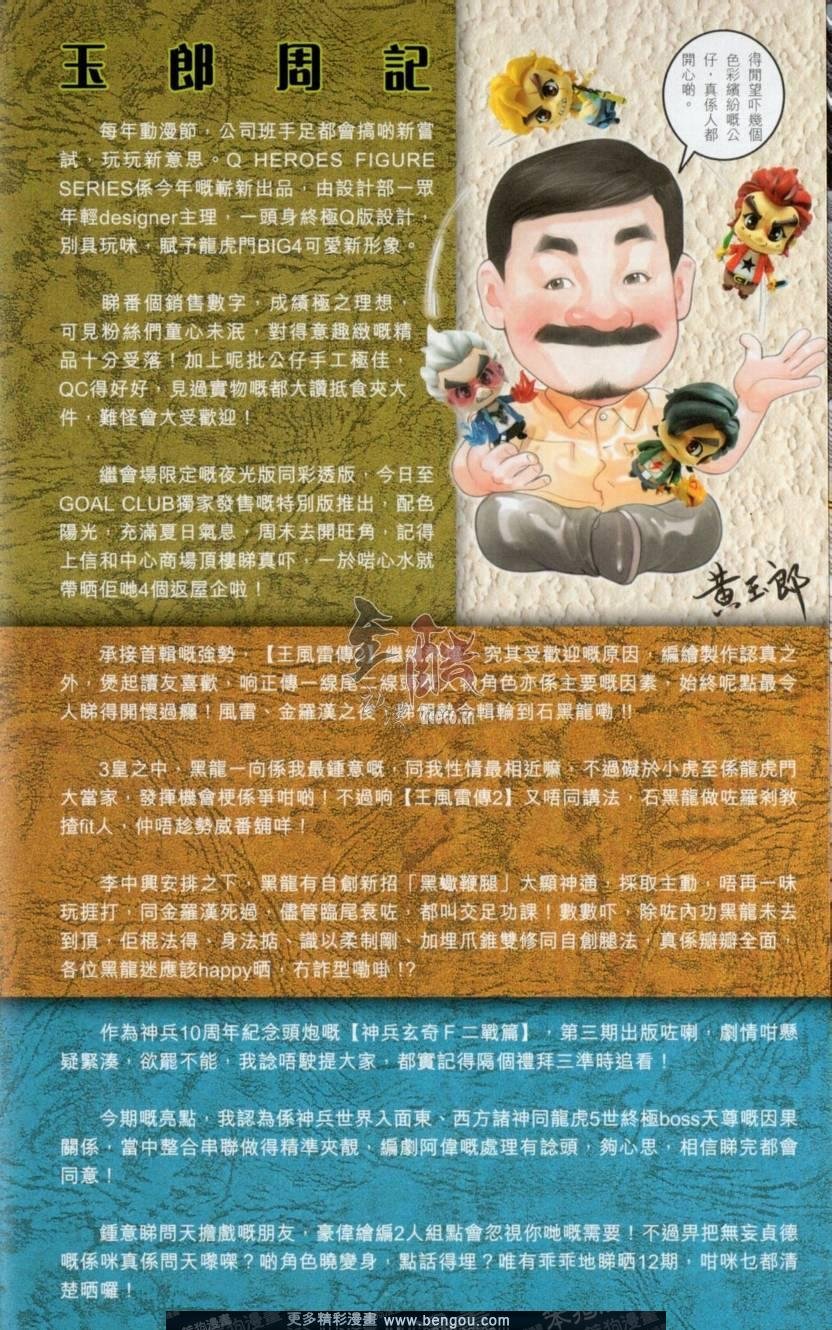 玉郎周記
得閒望吓幾個
色彩繽紛嘅公
仔，真係人都
開心啲。
每年動漫節，公司班手足都會搞啲新嘗
試，玩玩新意思。Q HEROES FIGURE
SERIES係今年嘅嶄新出品，由設計部一眾
年輕designer主理，一頭身終極Q版設計，
別具玩味，賦予龍虎門BIG4可愛新形象。
睇番個銷售數字，成績極之理想，
可見粉絲們童心未泯，對得意趣緻嘅精
品十分受落！加上呢批公仔手工極佳，
QC得好好，見過實物嘅都大讚抵食夾大
件，難怪會大受歡迎！
繼會場限定嘅夜光版同彩透版，今日至
GOAL CLUB獨家發售嘅特別版推出，配色
陽光，充滿夏日氣息，周末去開旺角，記得
上信和中心商場頂樓睇真吓，一於啱心水就
帶晒佢哋4個返屋企啦！
黃玉郎
承接首輯嘅強勢，【王風雷傳2】繼續，究其受歡迎嘅原因，編繪製作認真之
外，煲起讀友喜歡，响正傳一線尾二線頭角色亦係主要嘅因素，始終呢點最令
人睇得開懷過癮！風雷、金羅漢之後，今輯輪到石黑龍嘞!!
3皇之中，黑龍一向係我最鍾意嘅，同我性情最相近嘛，不過礙於小虎至係龍虎門
大當家，發揮機會梗係爭咁啲！不過响【王風雷傳2】又唔同講法，石黑龍做咗羅剎教
揸fit人，仲唔趁勢威番舖咩！
李中興安排之下，黑龍有自創新招「黑蠍鞭腿」大顯神通，採取主動，唔再一味
玩捱打，同金羅漢死過，儘管臨尾衰咗，都叫交足功課！數數吓，除咗內功黑龍未去
到頂，佢棍法得、身法掂、識以柔制剛、加埋爪錐雙修同自創腿法，真係瓣瓣全面，
各位黑龍迷應該happy晒，冇詐型嘞啩!?
作為神兵10周年紀念頭炮嘅【神兵玄奇F二戰篇】，第三期出版咗喇，劇情咁懸
疑緊湊，欲罷不能，我諗唔駛提大家，都實記得隔個禮拜三準時追看！
今期嘅亮點，我認為係神兵世界入面東、西方諸神同龍虎5世終極boss天尊嘅因果
關係，當中整合串聯做得精準夾靚，編劇阿偉嘅處理有諗頭，夠心思，相信睇完都會
同意！
鍾意睇問天擔戲嘅朋友，豪偉繪編2人組點會忽視你哋嘅需要！不過畀把無妄貞德
嘅係咪真係問天嚟㗎？啲角色曉變身，點話得埋？唯有乖乖地睇晒12期，咁咪乜都清
楚晒囉！
更多精彩漫畫 www.bengou.com